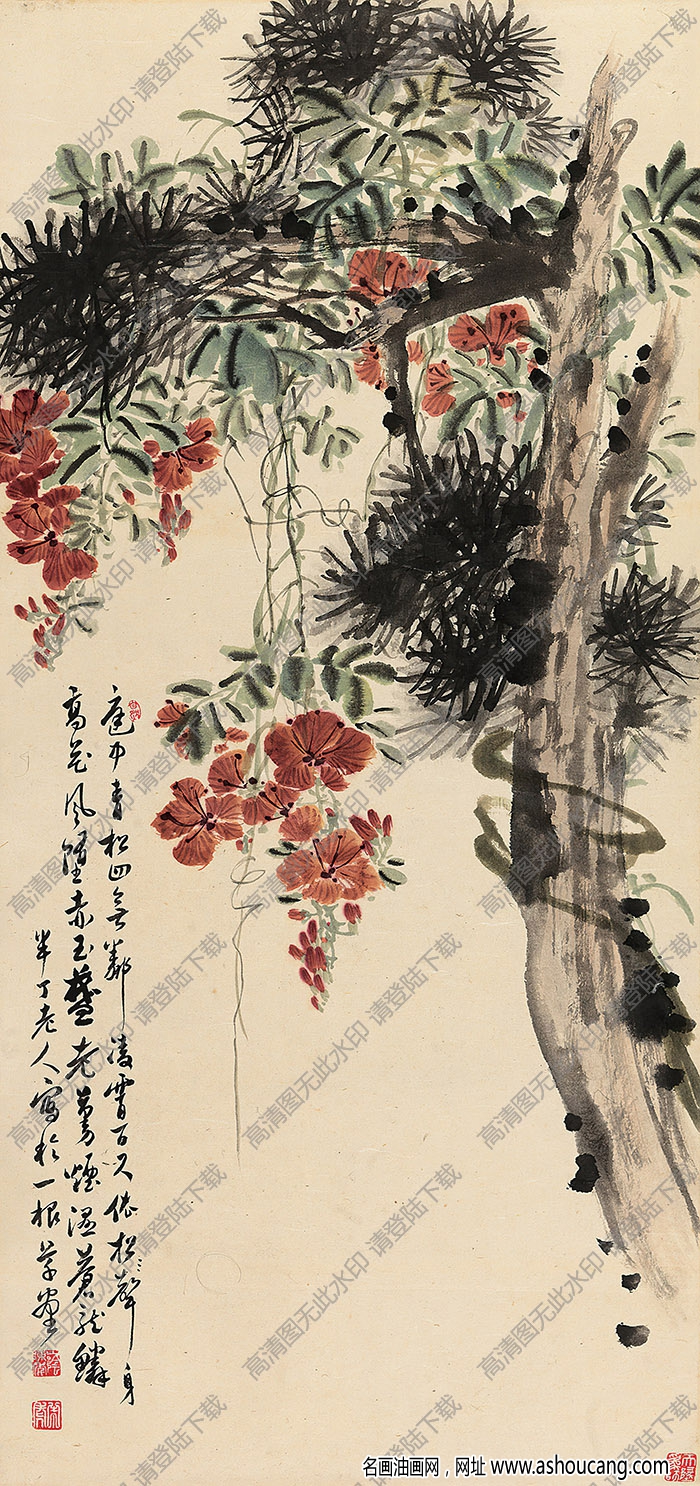 庭中青松四無鄰凌霄百尺依松ミ聳身
高花風墮赤玉盞老蔓煙濕蒼龍鱗
半丁老人寫於一根草堂
高清图无此水印 请登陆下载
名画油画网，网址 www.ashoucang.com